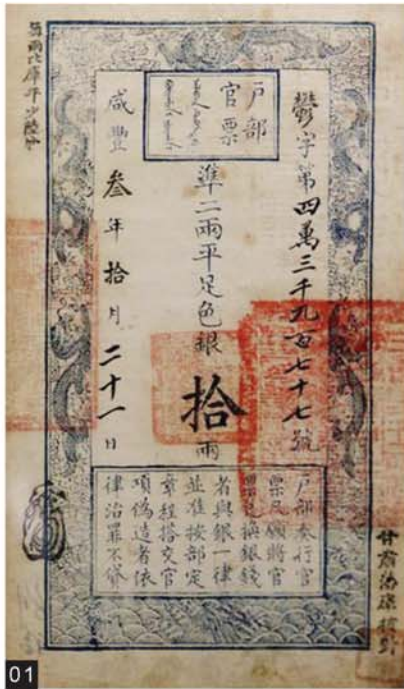 鬱字第四萬三千九百七十七號
戶部
官票
準二兩平足色銀拾兩
咸豐叁年拾月二十一日
戶部奏行官
票凡願將官
票兌換銀錢
者與銀一律
並准按部定
章程搭交官
項偽造者依
律治罪不貸
每兩比庫平少陸分
01